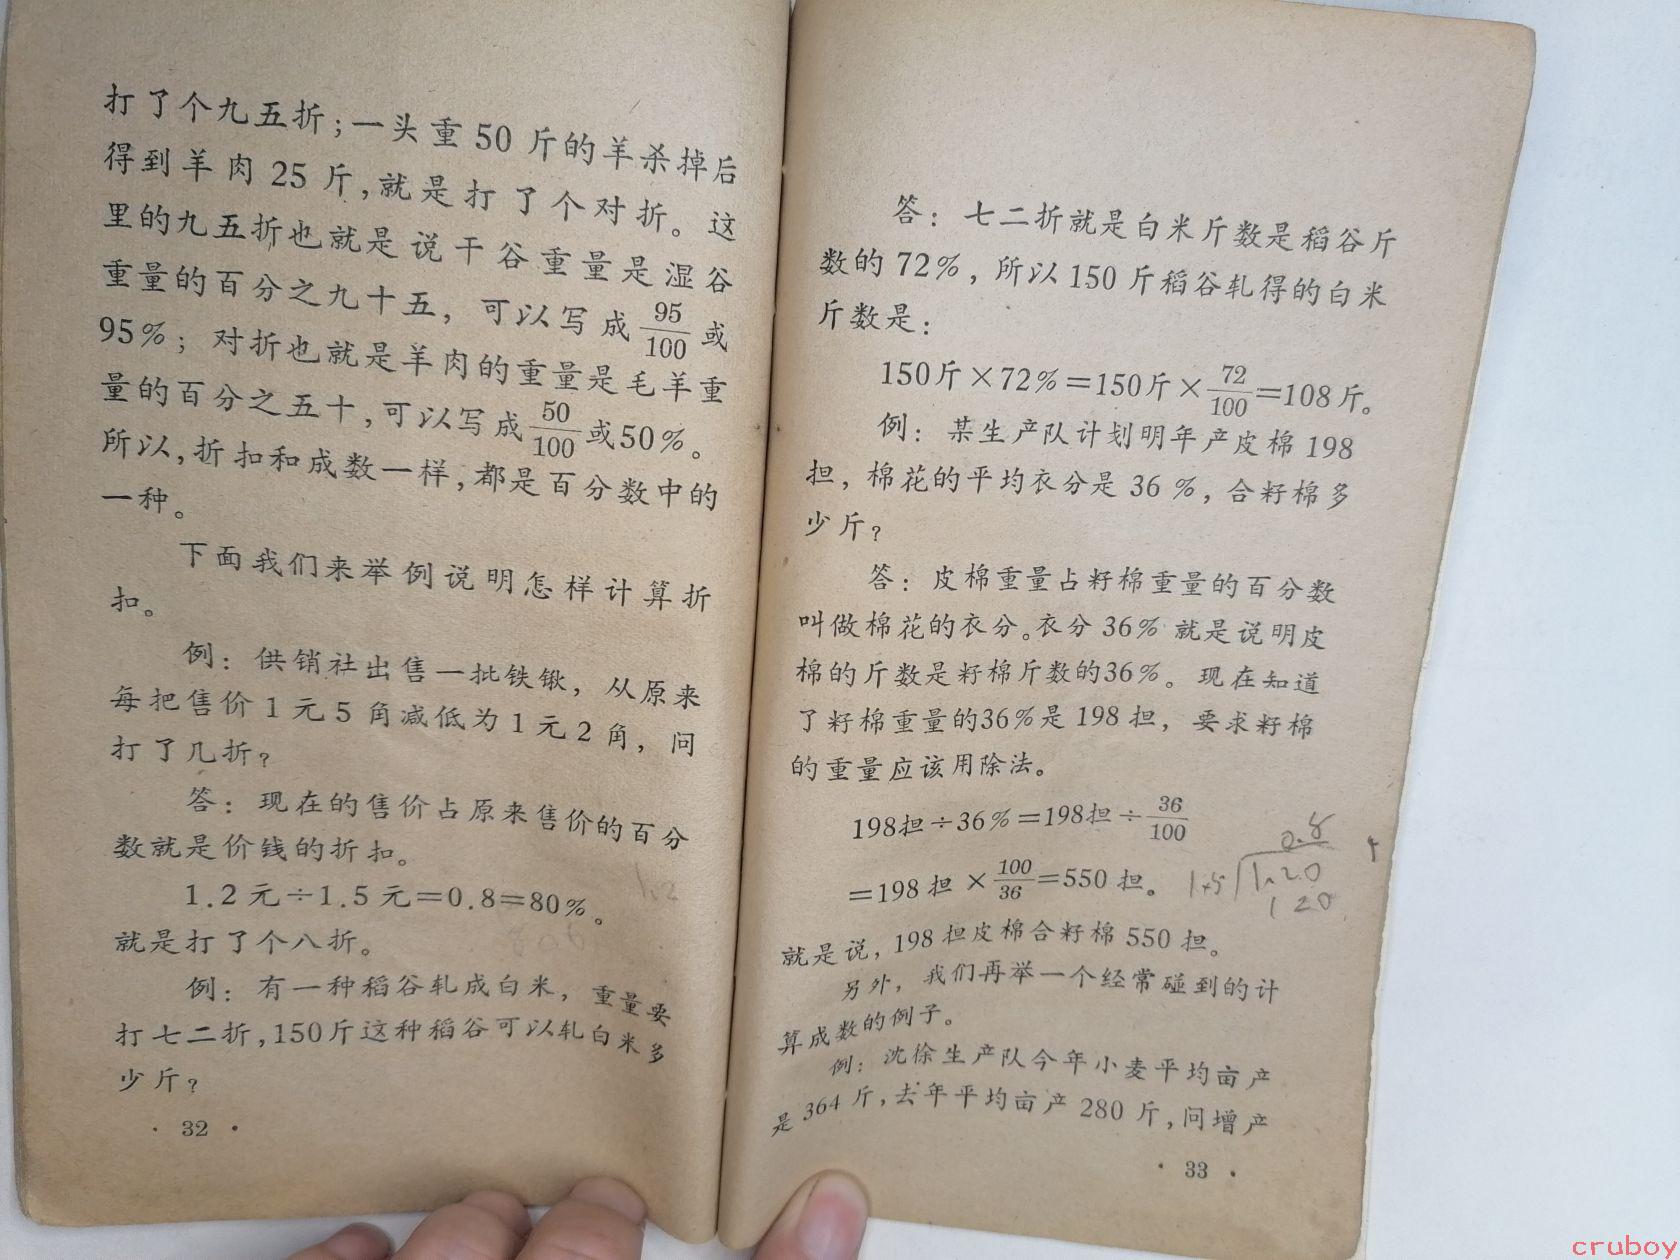 打了个九五折;一头重50斤的羊杀掉后
得到羊肉25斤,就是打了个对折。这
里的九五折也就是说干谷重量是湿谷
重量的百分之九十五,可以写成95/100或
95%;对折也就是羊肉的重量是毛羊重
量的百分之五十,可以写成50/100或50%。
所以,折扣和成数一样,都是百分数中的
一种。
下面我们来举例说明怎样计算折
扣。
例:供销社出售一批铁锹,从原来
每把售价1元5角减低为1元2角,问
打了几折?
答:现在的售价占原来售价的百分
数就是价钱的折扣。
1.2元÷1.5元=0.8=80%。
就是打了个八折。
例:有一种稻谷轧成白米,重量要
打七二折,150斤这种稻谷可以轧白米多
少斤?
· 32 ·
答:七二折就是白米斤数是稻谷斤
数的72%,所以150斤稻谷轧得的白米
斤数是:
150斤×72%=150斤×72/100=108斤。
例:某生产队计划明年产皮棉198
担,棉花的平均衣分是36%,合籽棉多
少斤?
答:皮棉重量占籽棉重量的百分数
叫做棉花的衣分。衣分36%就是说明皮
棉的斤数是籽棉斤数的36%。现在知道
了籽棉重量的36%是198担,要求籽棉
的重量应该用除法。
198担÷36%=198担÷36/100
=198担×100/36=550担。
0.8
1.5 1.20
120
就是说,198担皮棉合籽棉550担。
另外,我们再举一个经常碰到的计
算成数的例子。
例:沈徐生产队今年小麦平均亩产
是364斤,去年平均亩产280斤,问增产
· 33 ·
cruboy